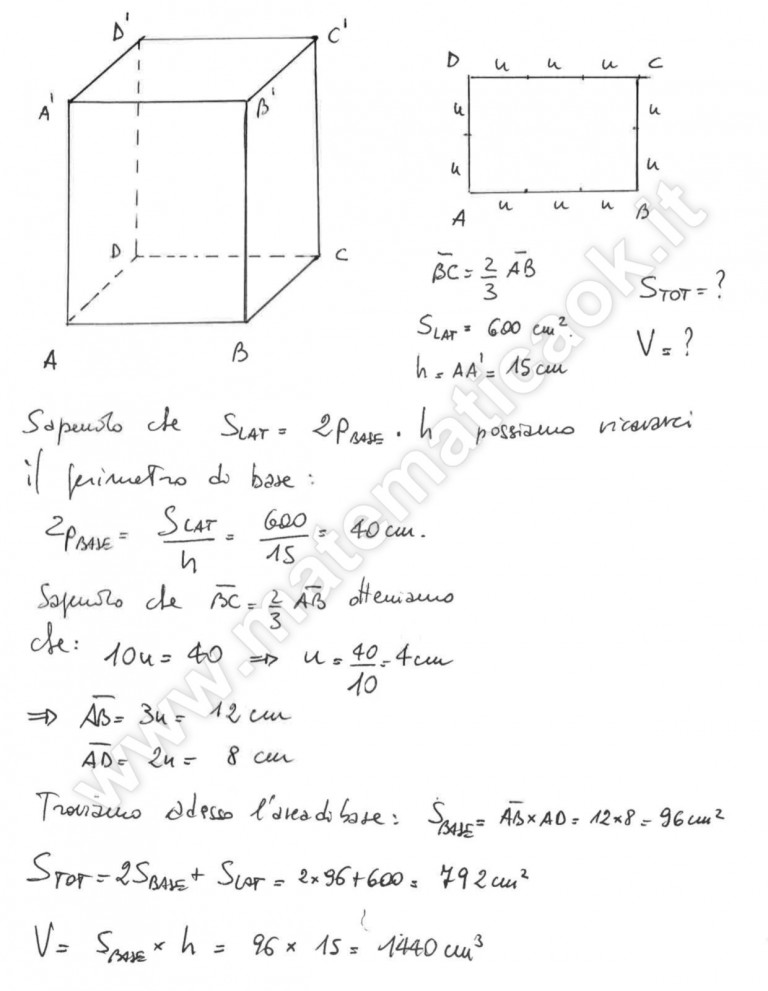 D' C'
A' B'
D C
A B
D u u u C
u u
u u
A u u u B
BC = 2/3 AB
S_TOT = ?
S_LAT = 600 cm².
V = ?
h = AA' = 15 cm
Sapendo che S_LAT = 2P_BASE · h possiamo ricavarci
il perimetro di base:
2P_BASE = S_LAT/h = 600/15 = 40 cm.
Sapendo che BC = 2/3 AB otteniamo
che: 10u = 40 ⇒ u = 40/10 = 4 cm
⇒ AB = 3u = 12 cm
AD = 2u = 8 cm
Troviamo adesso l'area di base: S_BASE = AB × AD = 12 × 8 = 96 cm²
S_TOT = 2S_BASE + S_LAT = 2 × 96 + 600 = 792 cm²
V = S_BASE × h = 96 × 15 = 1440 cm³
www.matematicaok.it